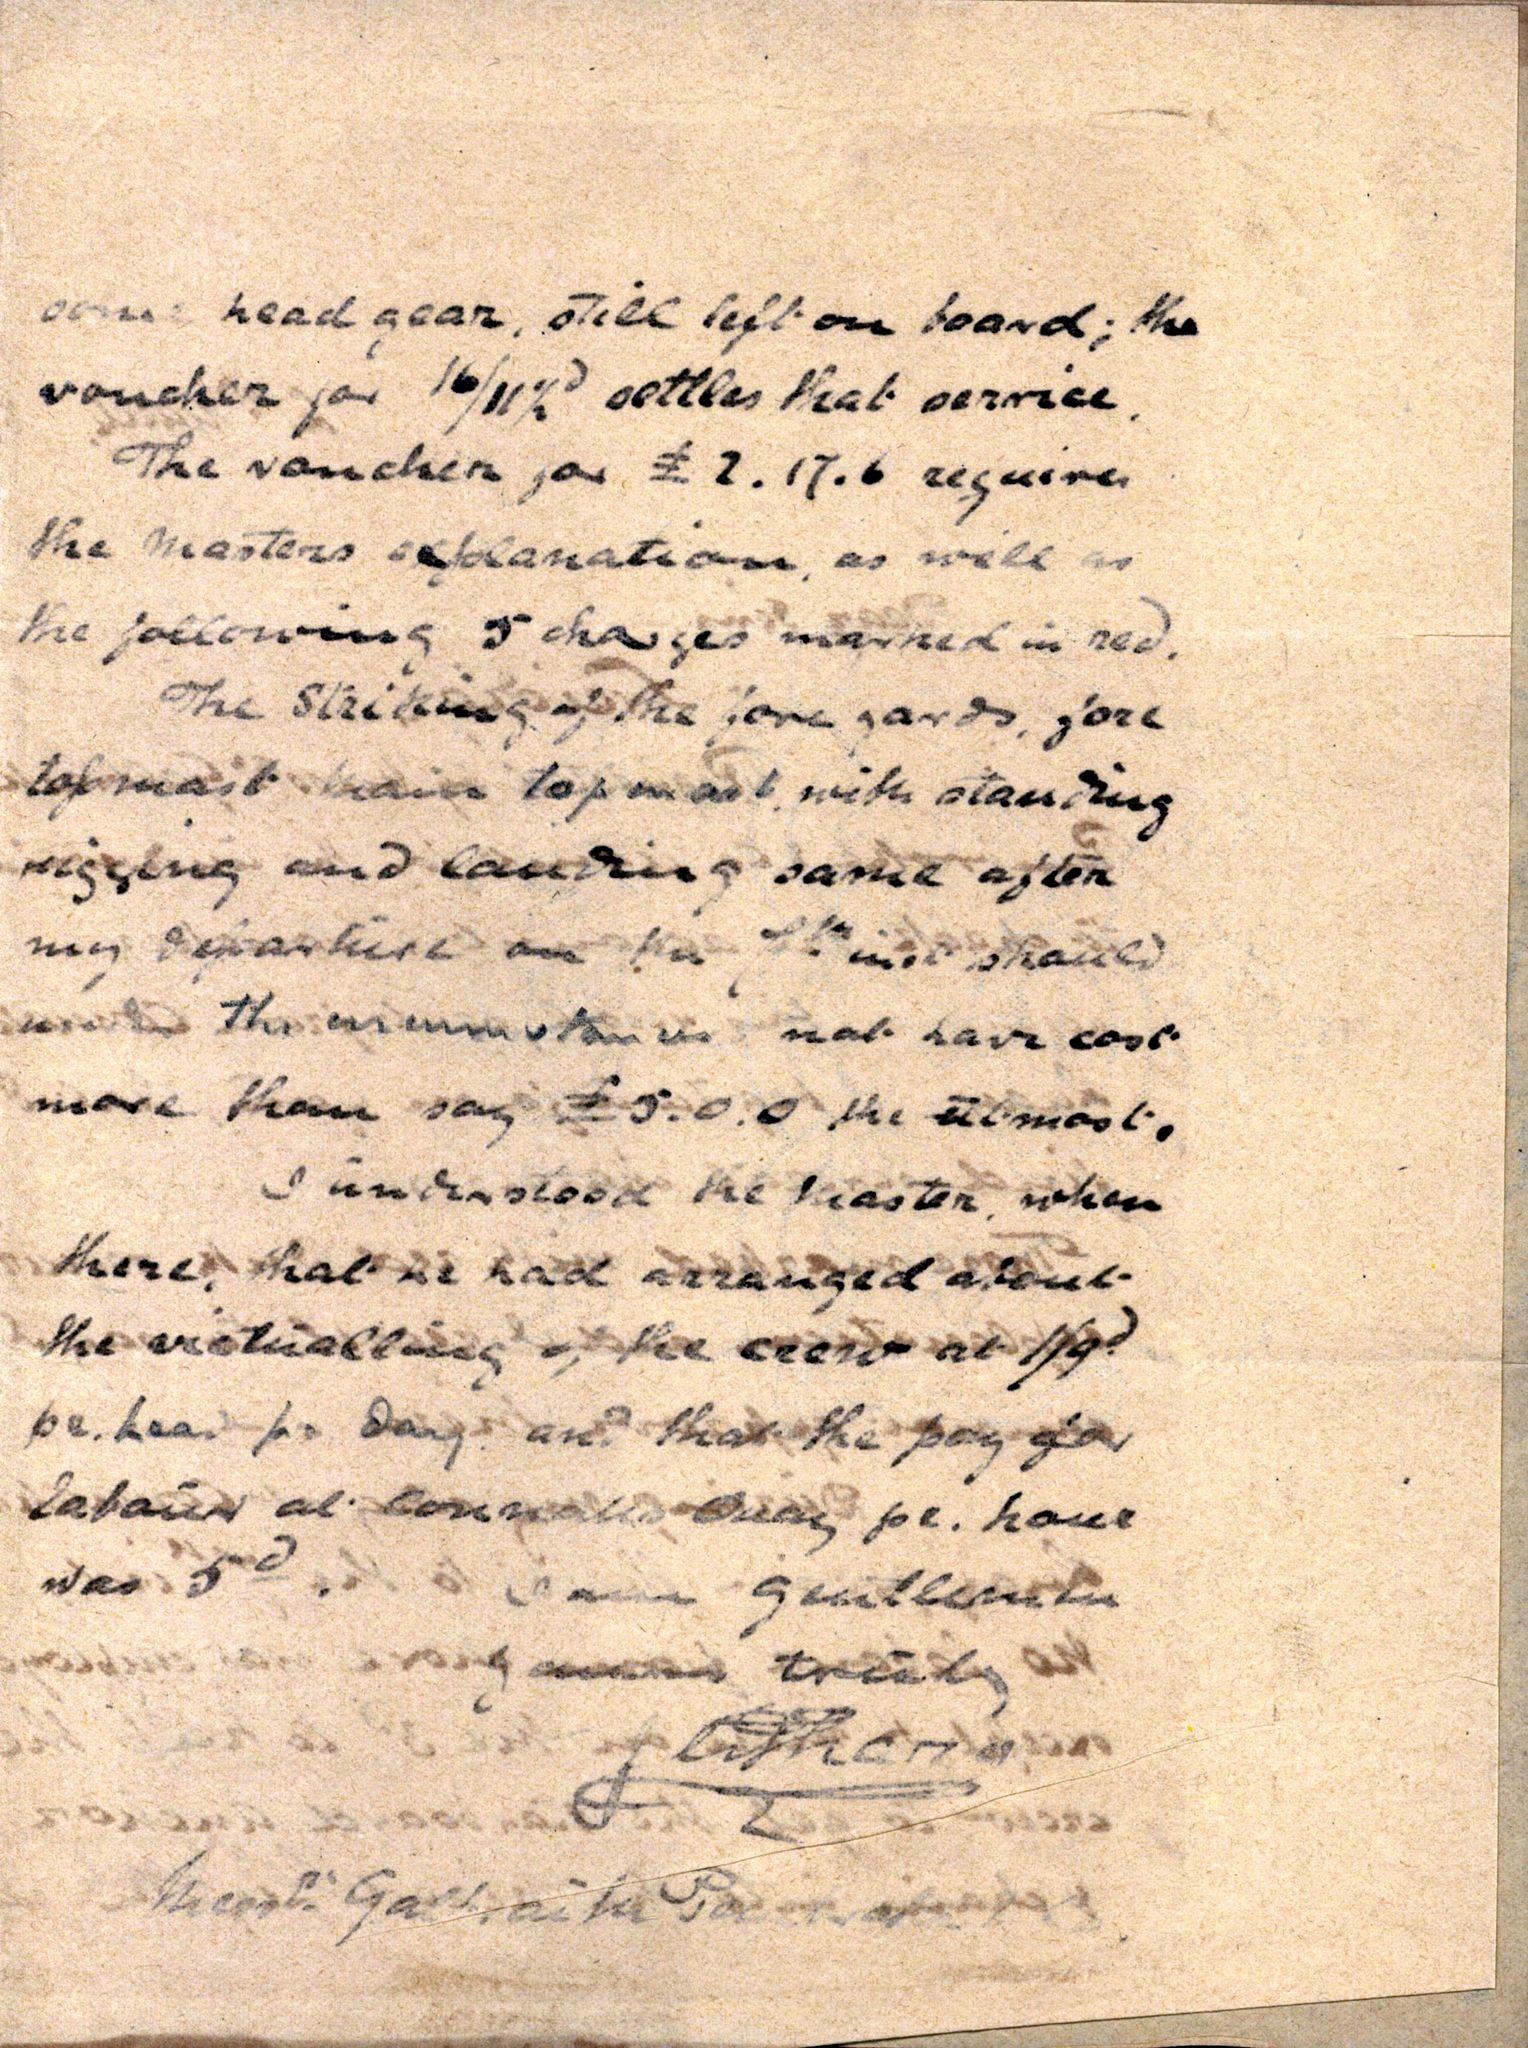 some head gear, still left on board; the
voucher for 16/11½d settles that service.
The voucher for £2.17.6 requires
the Masters explanation, as well as
the following 5 charges marked in red.
The Striking of the fore yards, fore
topmast main topmast, with standing
rigging and landing same after
my departure on the inst should
under the circumstances not have cost
more than say £5.0.0 the utmost.
I understood the Master, when
there, that he had arranged about
the victualling of the crew at 1/9d
pr. head pr day. and that the pay for
labour at Connahs Quay pr. hour
was 5d. I am Gentlemen
yours truly
Messrs. Galbraith